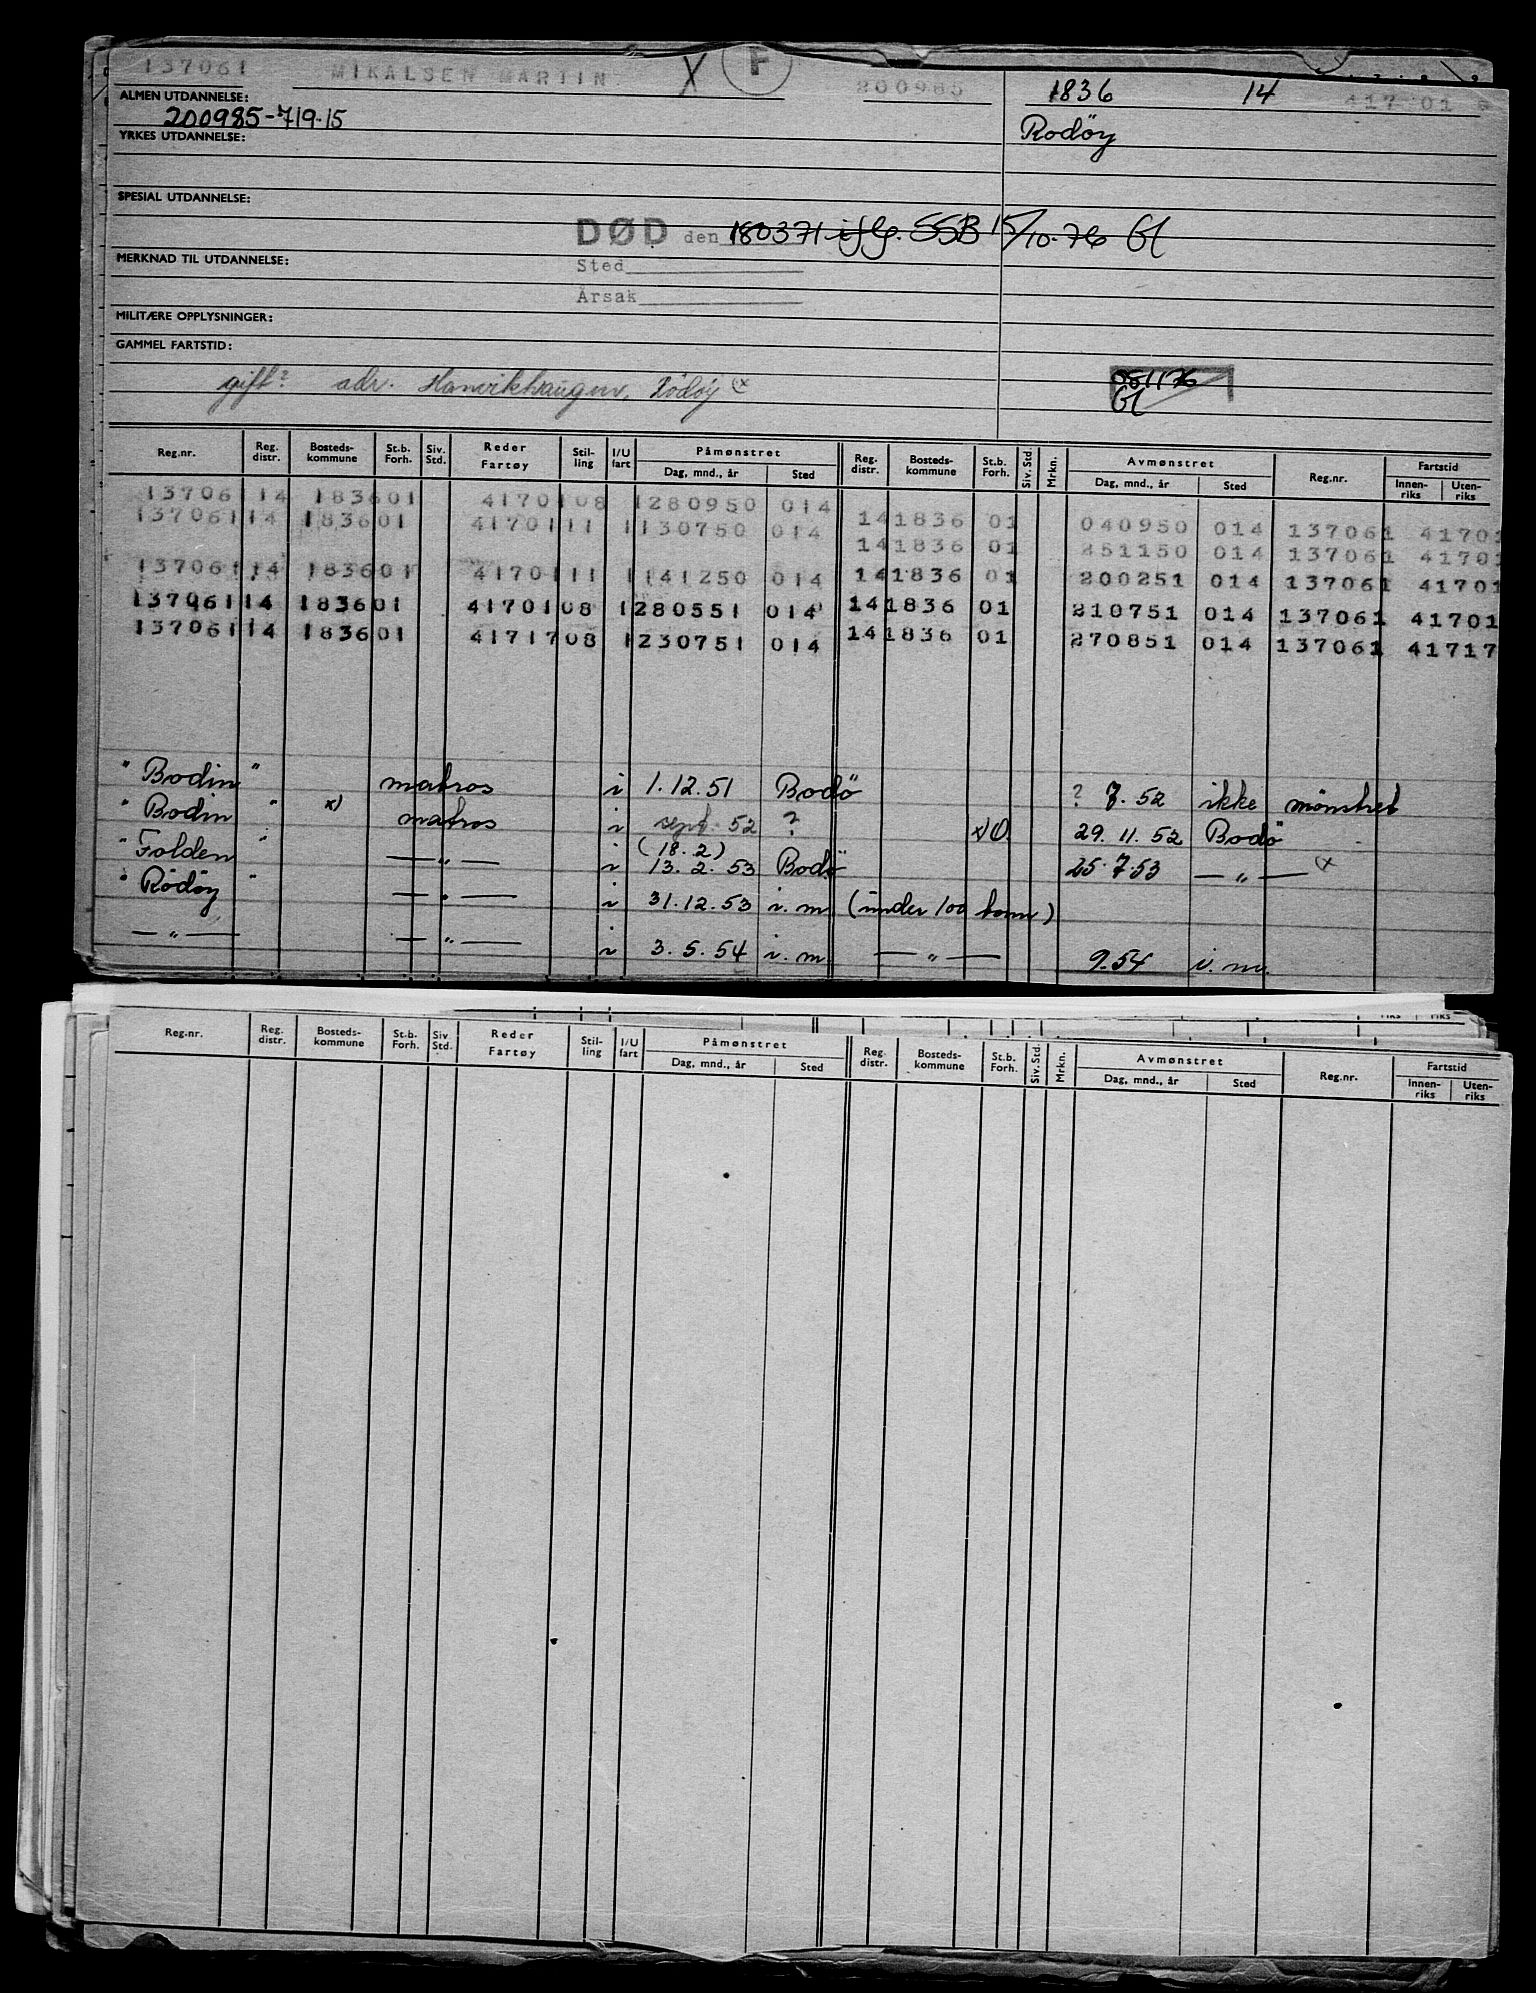 137061 MIKALSEN MARTIN X F 200985 1836 14 417 01
ALMEN UTDANNELSE:
200985-719-15 Rodöy
YRKES UTDANNELSE:
SPESIAL UTDANNELSE:
DØD den 180371 iflg. SSB 15/10-76 Gl
MERKNAD TIL UTDANNELSE:
Sted
Årsak
MILITÆRE OPPLYSNINGER:
GAMMEL FARTSTID:
gift? adr. Rödöy (x
051176
Gl
Reg.nr. Reg. distr. Bosteds-kommune St.b. Forh. Siv. Std. Reder Fartøy Stil-ling I/U fart Påmønstret Dag, mnd., år Sted Reg. distr. Bosteds-kommune St.b. Forh. Siv. Std. Mrkn. Avmønstret Dag, mnd., år Sted Reg.nr. Fartstid Innen-riks Uten-riks
13706114 183601 4170108 1280950 014
13706114 183601 4170111 1130750 014 141836 01 040950 014 137061 41701
141836 01 251150 014 137061 41701
13706114 183601 4170111 1141250 014 141836 01 200251 014 137061 41701
13706114 183601 4170108 1280551 014 141836 01 210751 014 137061 41701
13706114 183601 4171708 1230751 014 141836 01 270851 014 137061 41717
" Bodin " matros i 1.12.51 Bodö ? 7.52 ikke mönstret
" Bodin " x) matros i sept 52 ? x) O 29.11.52 Bodö
(18.2)
" Folden " — " — i 13.2.53 Bodö 25.7.53 — " — (x
" Rödöy " — " — i 31.12.53 i.m. (under 100 tonn)
— " — — " — i 3.5.54 i.m. — " — 9.54 i.m.
riks riks
Reg.nr. Reg. distr. Bosteds-kommune St.b. Forh. Siv. Std. Reder Fartøy Stil-ling I/U fart Påmønstret Dag, mnd., år Sted Reg. distr. Bosteds-kommune St.b. Forh. Siv. Std. Mrkn. Avmønstret Dag, mnd., år Sted Reg.nr. Fartstid Innen-riks Uten-riks